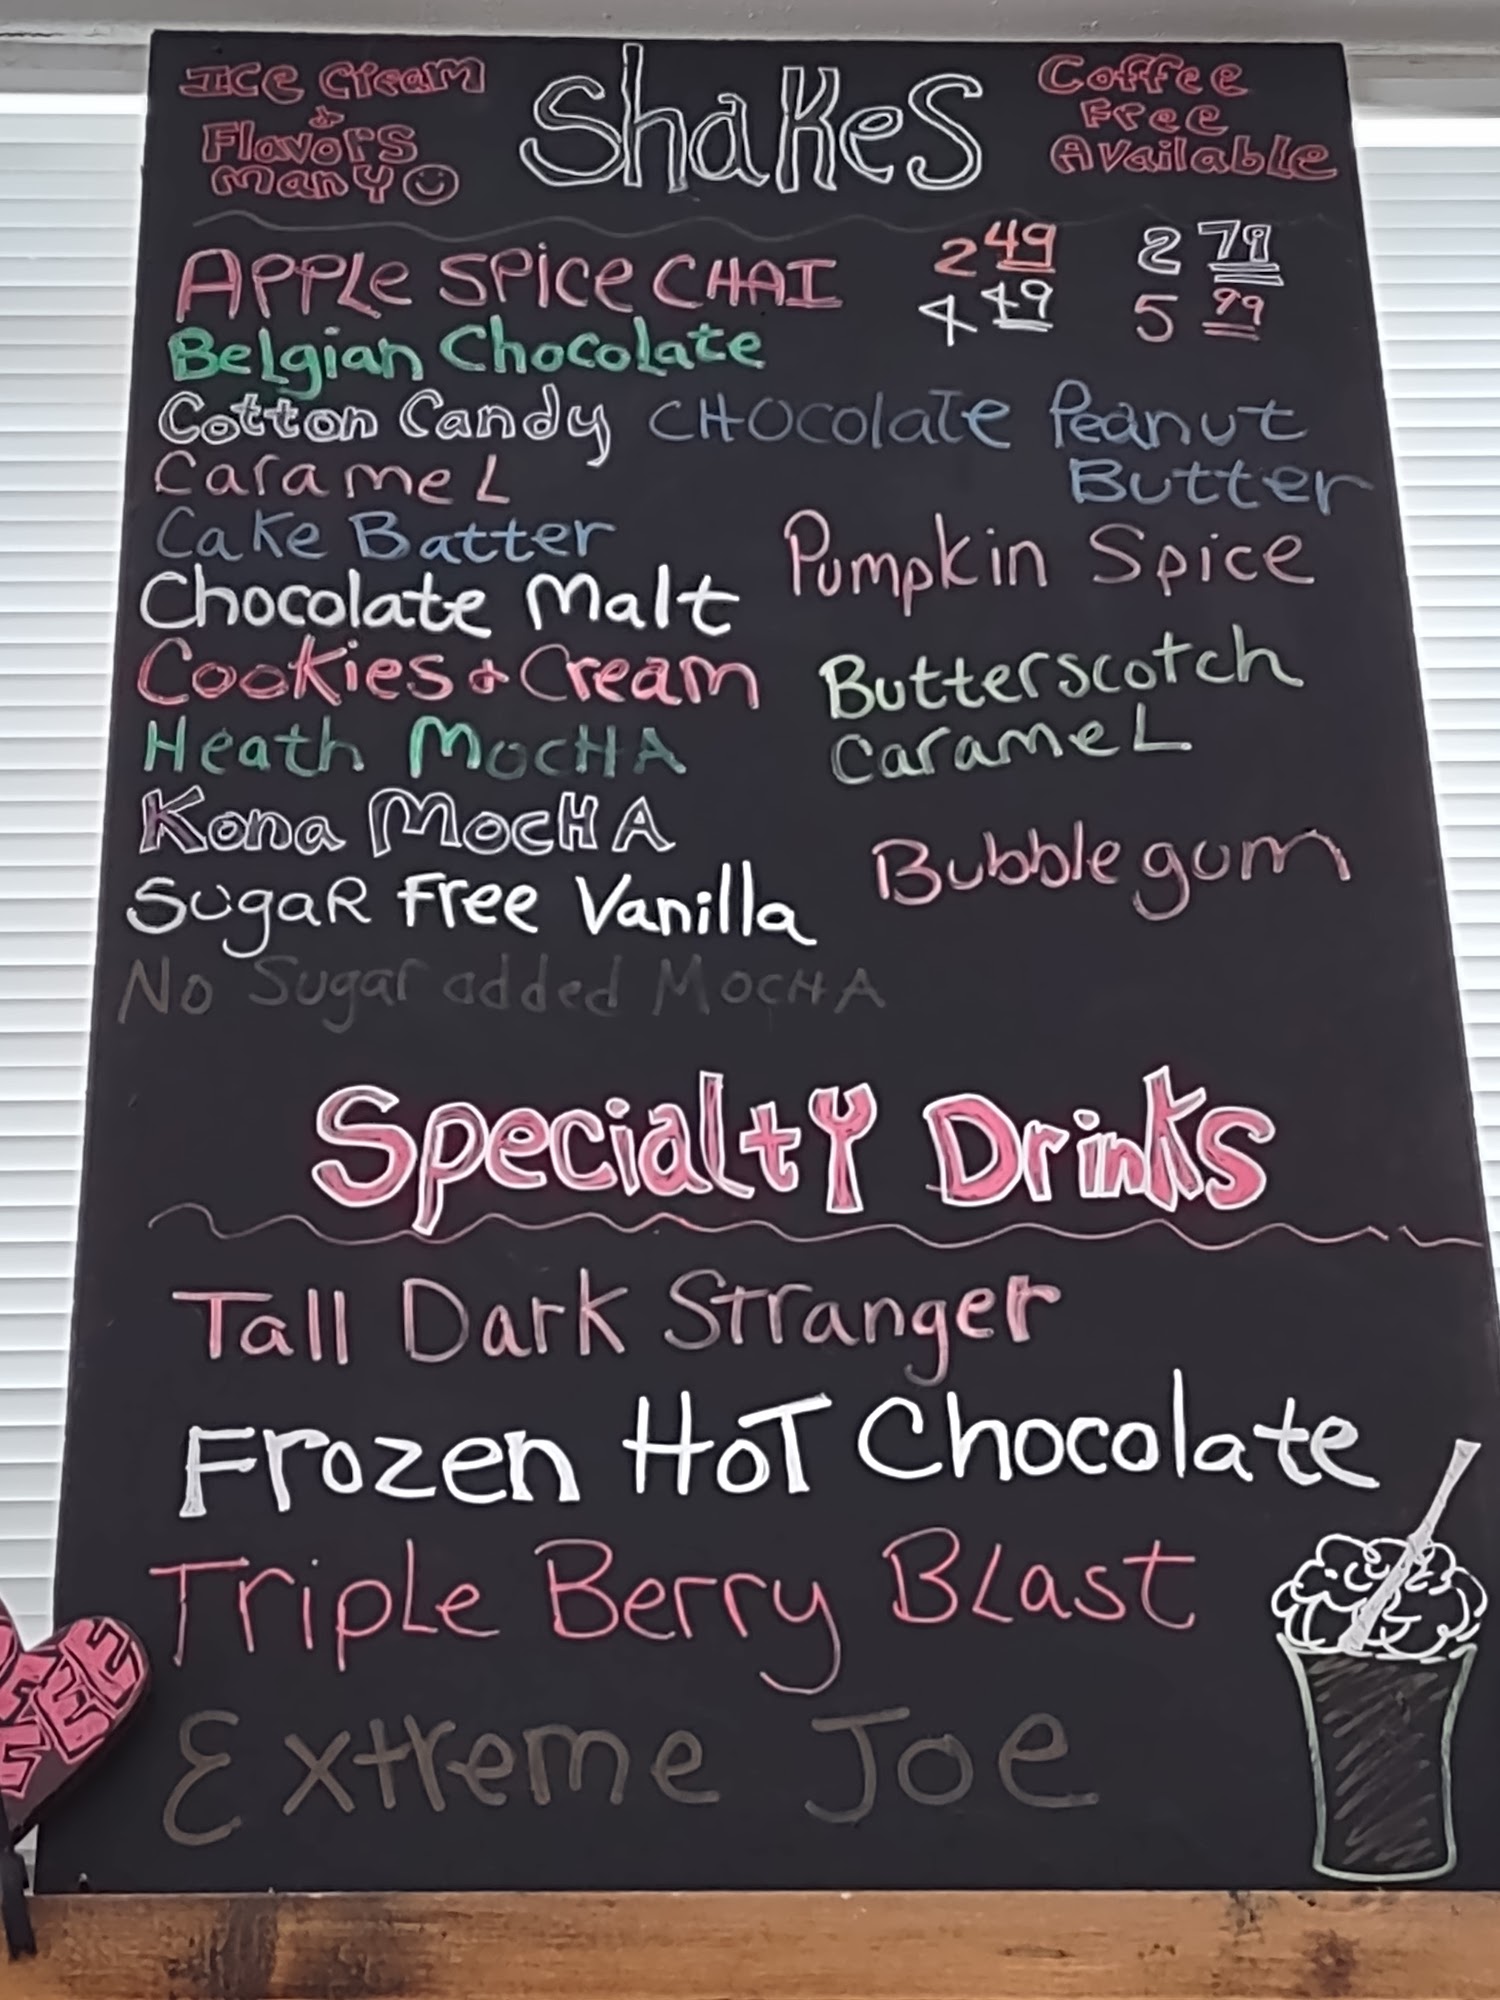 Ice Cream
&
Flavors
Many
Shakes
Coffee
Free
Available
APPLE SPice CHAI 2 49 2 79
4 49 5 99
Belgian Chocolate
Cotton Candy
CHOcolate Peanut
Butter
Caramel
Cake Batter
Pumpkin Spice
Chocolate Malt
Cookies & Cream
Butterscotch
Caramel
Heath MocHA
Kona MocHA
Bubblegum
SugaR Free Vanilla
No Sugar added MocHA
Specialty Drinks
Tall Dark Stranger
Frozen HoT Chocolate
Triple Berry Blast
Extreme Joe